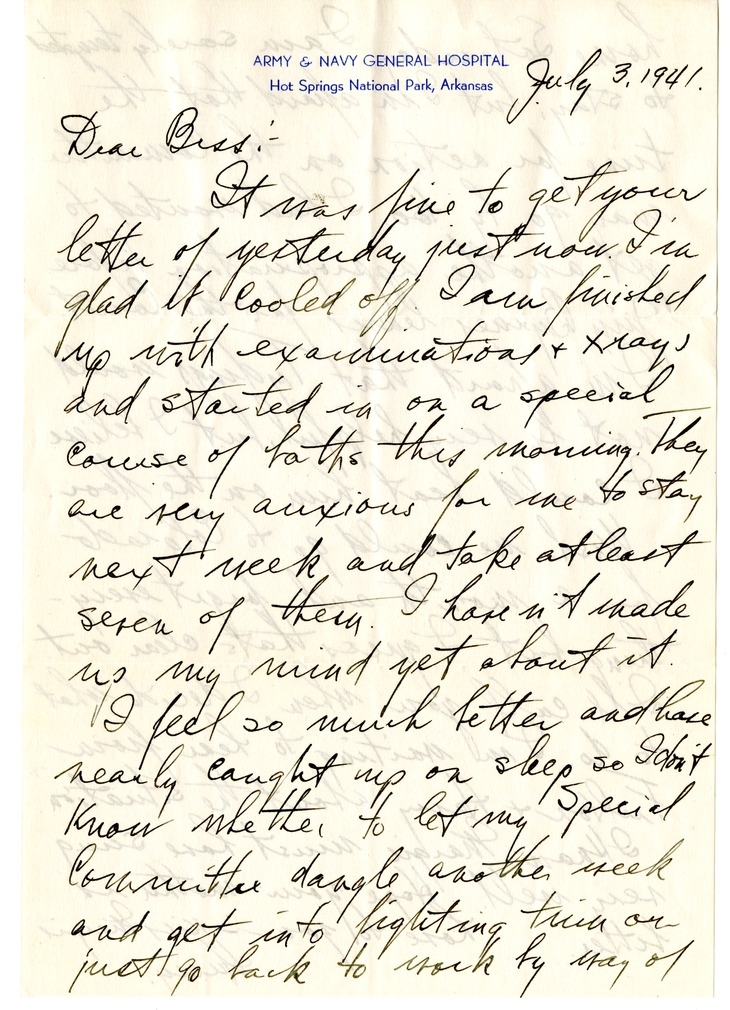 ARMY & NAVY GENERAL HOSPITAL
Hot Springs National Park, Arkansas
July 3, 1941.
Dear Bess:-
It was fine to get your
letter of yesterday just now. I'm
glad it cooled off. I am finished
up with examinations + xrays
and started in on a special
course of baths this morning. They
are very anxious for me to stay
next week and take at least
seven of them. I haven't made
up my mind yet about it.
I feel so much better and have
nearly caught up on sleep so I don't
know whether to let my Special
Committee dangle another week
and get into fighting trim or
just go back to work by way of